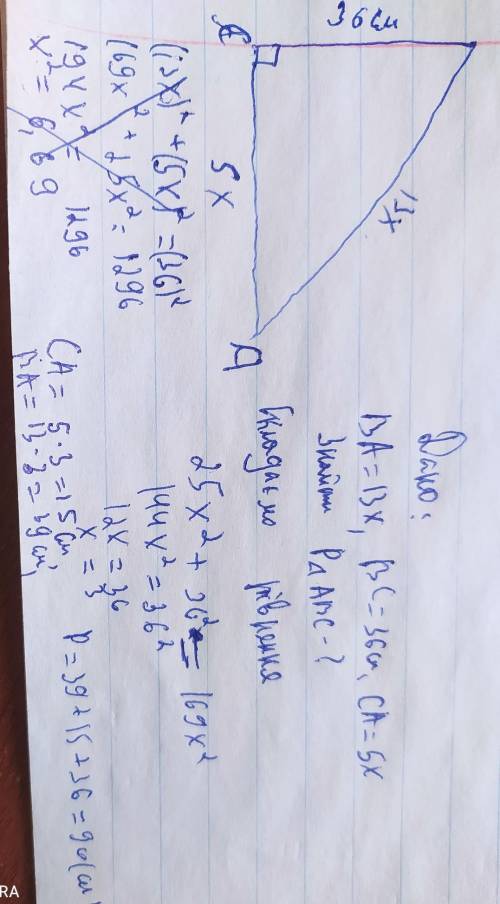 36см
C
5x
13x
A
(13x)² + (5x)² = (36)²
169x² + 25x² = 1296
194x² = 1296
x² = 6,69
Дано:
BA=13x, BC=36см, CA=5x
Знайти P△ABC-?
Складемо рівняння
25x² + 36² = 169x²
144x² = 36²
12x = 36
x = 3
CA = 5·3=15см,
BA = 13·3=39см,
P=39+15+36=90(см)
RA